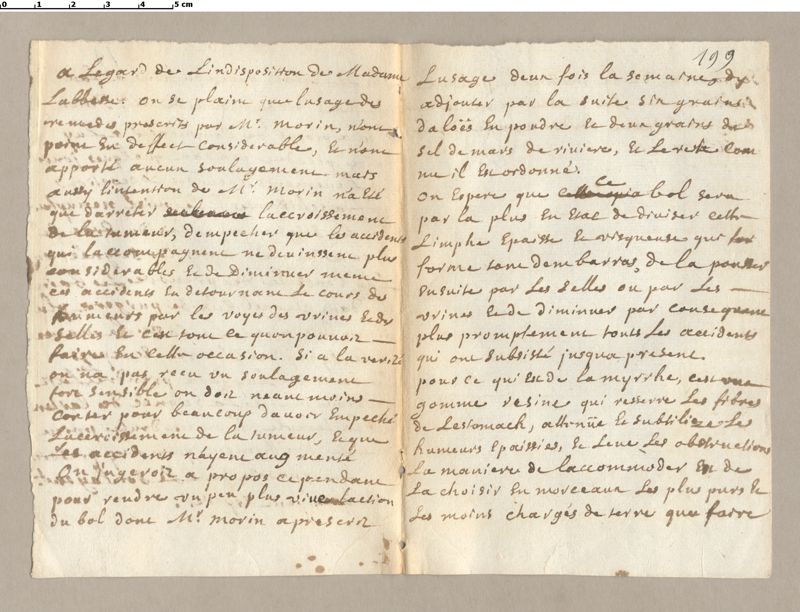 0 1 2 3 4 5 cm
a Legard de Lindisposition de Madame
Labbesse. on se plaint que lusage des
remedes prescrits par Mr. Morin, n'ont
point En deffect Considerable, Et n'ont
apporté aucun soulagement mais
aussy lintention de Mr. Morin n'a Eté
que darreter laccroissement
de la tumeur, dempecher que les accidents
qui laccompagnent ne devinssent plus
considerables Et de Diminuer meme
ces accidents En detournant Le cours des
humeurs par les voyes des vrines Et des
selles Et c'est tout ce quon pouvoit
faire En cette occasion. Si a la verité
on n'a pas recu vn soulagement
fort sensible on doit neant moins
Conter pour beaucoup davoir Empeché
Laccroissement de la tumeur, Et que
Les accidents n'ayent augmenté
On jugeroit a propos cependant
pour rendre vn peu plus vive laction
du bol dont Mr morin a prescrit
199
Lusage deux fois la semaine, dy
adjouter par la suite Six grains
daloës En poudre Et deux grains de
sel de mars de riviere, Et Le reste com
me il Est ordonné.
On Espere que ce bol sera
par la plus En Etat de diviser cette
Limphe Epaisse Et visqueuse qui
forme tant dembarras, de la pousser
Ensuite par Les Selles ou par Les
vrines Et de diminuer par consequent
plus promptement touts Les accidents
qui ont subsisté jusqua present.
pour ce qui Est de la myrrhe, c'est une
gomme resine qui resserre Les fibres
de Lestomach, attenüe Et subtilize Les
humeurs Epaissies, Et Leve Les obstructions
La maniere de laccommoder Est de
La choisir En morceaux Les plus purs Et
Les moins chargés de terre que faire